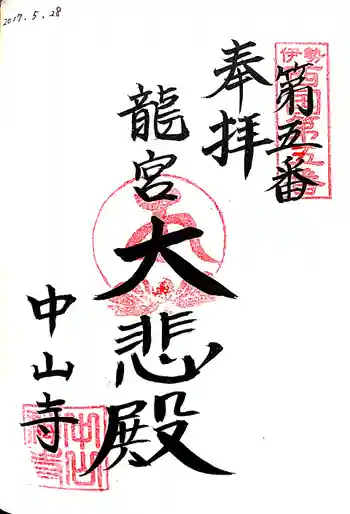 2017.5.28
伊勢西国第五番
第五番
奉拝
龍宮
大悲殿
中山寺